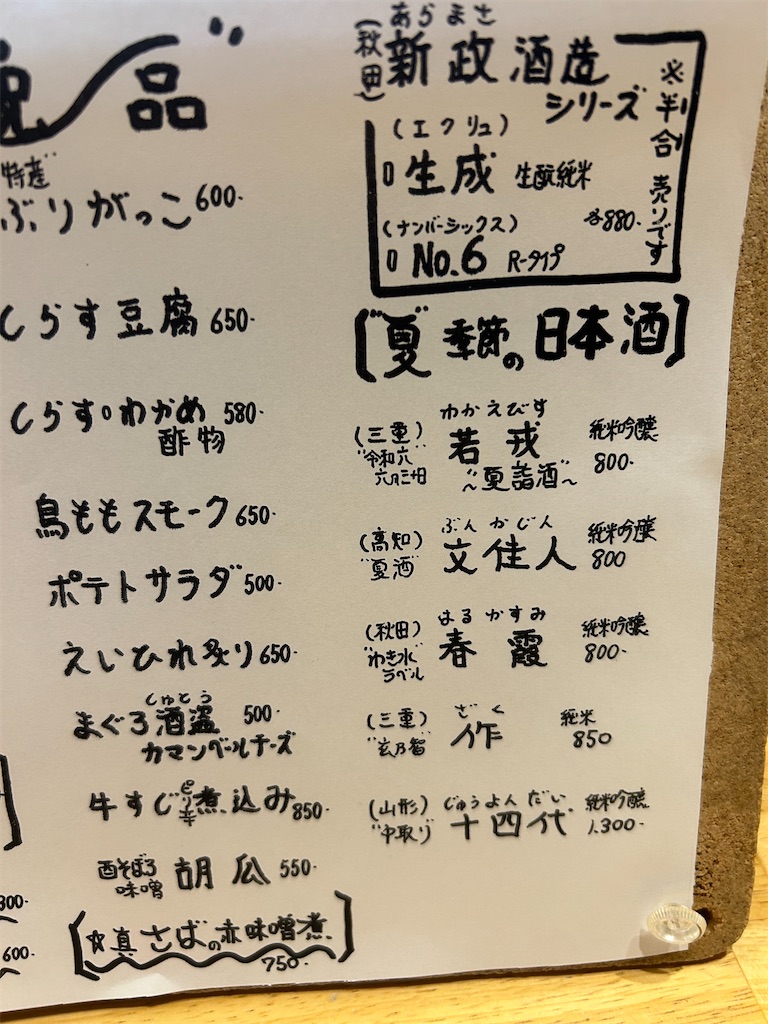 品
特産
ぶりがっこ 600-
しらす豆腐 650-
しらす・わかめ 580-
酢物
鳥ももスモーク 650-
ポテトサラダ 500-
えいひれ炙り 650-
しゅとう
まぐろ酒盗 500-
カマンベールチーズ
牛すじピリ辛煮込み 850-
酉そぼろ
味噌 胡瓜 550-
☆真さばの赤味噌煮
750-
300-
600-
あらまさ
(秋田) 新政酒造
シリーズ
※半合売りです
(エクリュ)
生成 生酛純米
各880-
(ナンバーシックス)
No.6 R-タイプ
["夏"季節の日本酒]
わかえびす
(三重) 若戎 純米吟醸
"令和六 800-
六月三十日
~"夏詣酒"~
ぶんかじん
(高知) 文佳人 純米吟醸
"夏酒" 800
はるかすみ
(秋田) 春霞 純米吟醸
"わき水 800-
ラベル
ざく
(三重) 作 純米
"玄乃智" 850
じゅうよんだい
(山形) 十四代 純米吟醸
"中取り" 1,300-